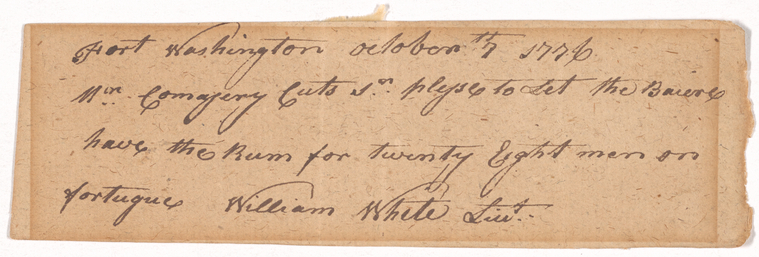 Fort Washington october 7th 1776
Mr. Comasery Cuts Sr. plyse to Let the Baiere
have the Rum for twenty Eight men on
fortugue William White Liut.